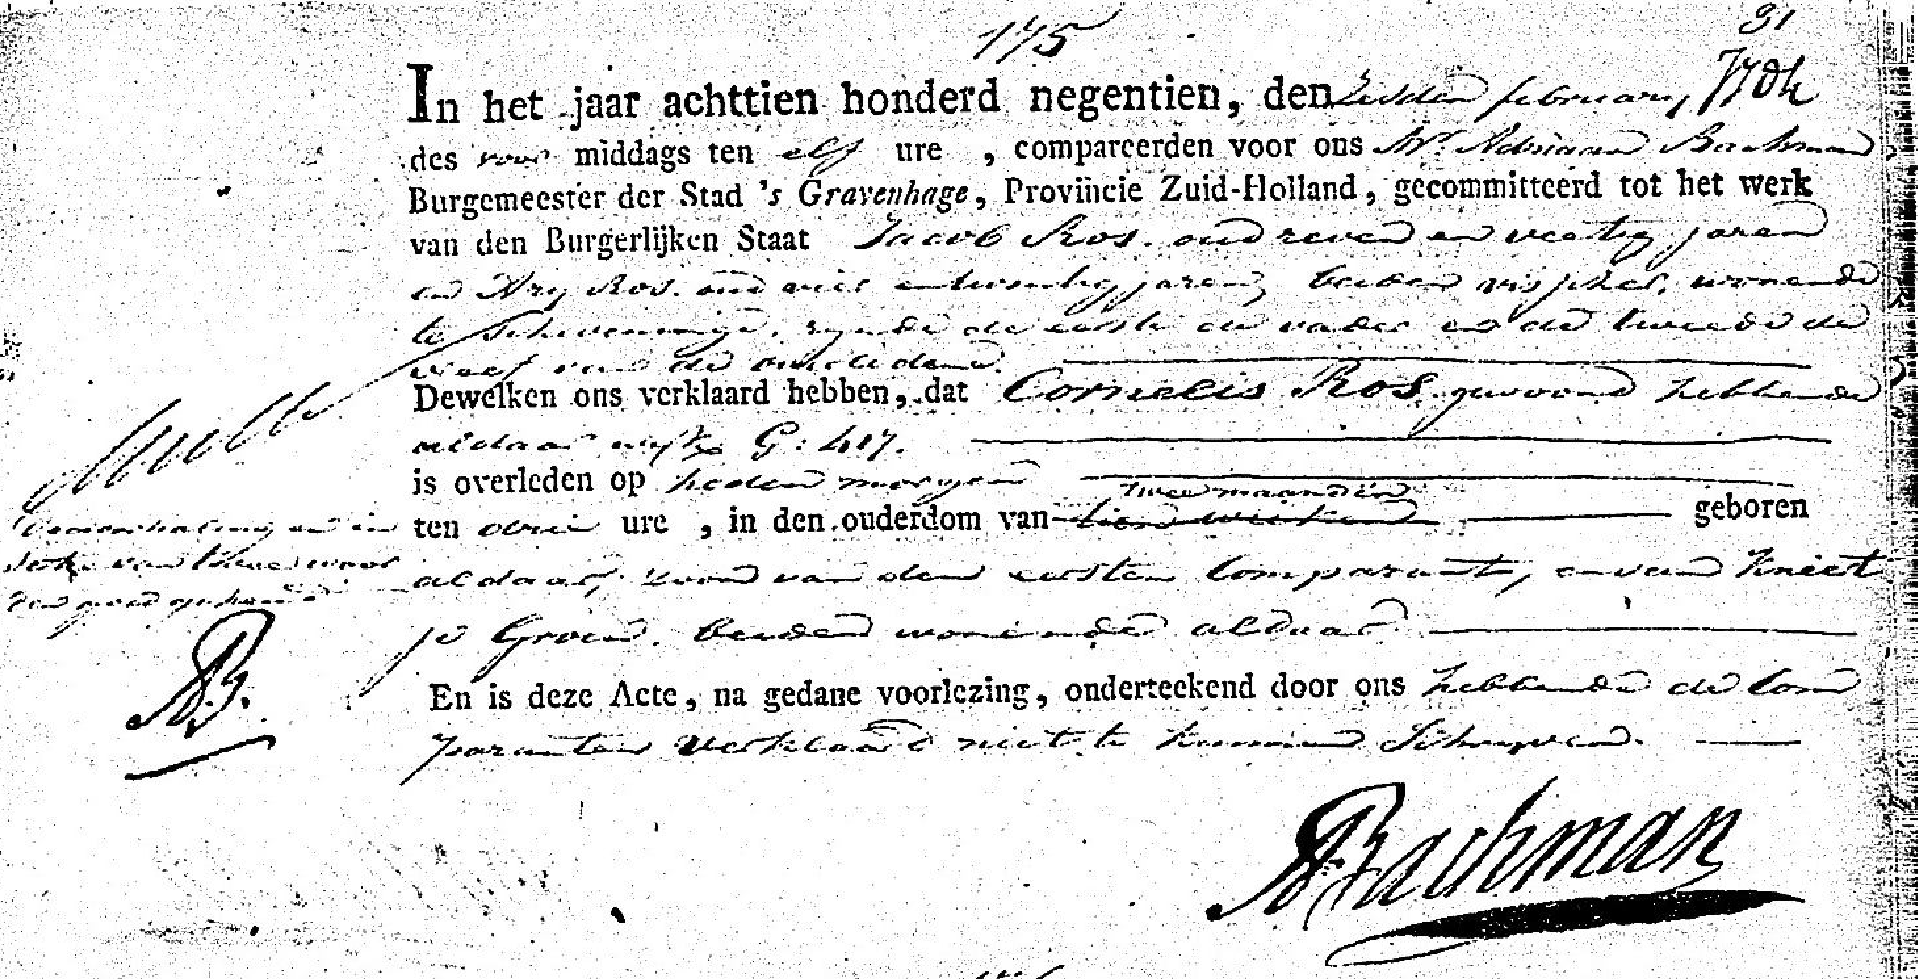 175
31
In het jaar achttien honderd negentien, den zesden february,
des voor middags ten elf ure , compareerden voor ons Mr. Adriaan Bachman
Burgemeester der Stad 's Gravenhage, Provincie Zuid-Holland, gecommitteerd tot het werk
van den Burgerlijken Staat Jacob Ros. oud zeven en veertig jaren
en Ary Ros. oud vier entwintig jaren, beiden visscher, wonende
te Scheveningen. zynde de eerste de vader en de tweede de
neef van de overledene.
Dewelken ons verklaard hebben, dat Cornelis Ros. gewoond hebbende
aldaar wyk G: 417.
is overleden op heden morgen
twee maanden
ten drie ure , in den ouderdom van tien weken geboren
aldaar, zoon van den eersten Comparant, en van Kniert
je Groen. beiden wonende aldaar
En is deze Acte, na gedane voorlezing, onderteekend door ons hebbende de Com
paranten verklaard niet te kunnen Schryven.
Nul
en in
van twee woor
den goed gekeurd
AB.
ABachman